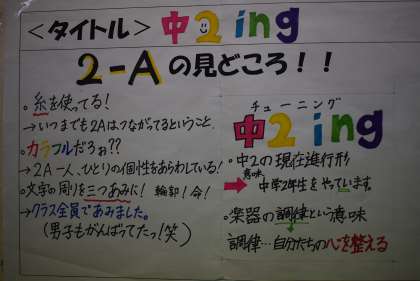 <タイトル> 中2ing
2-Aの見どころ！！
。糸を使ってる！
→いつまでも2Aはつながってるということ。
。カラフルだろぉ??
→2A一人、ひとりの個性をあらわしている！
。文字の周りを三つあみに！ 輪郭！命！
→クラス全員であみました。
(男子もがんばってたっ！笑)
チューニング
中2ing
。中2の現在進行形
意味
→中学2年生をやっています。
。楽器の調律という意味
調律…自分たちの心を整える